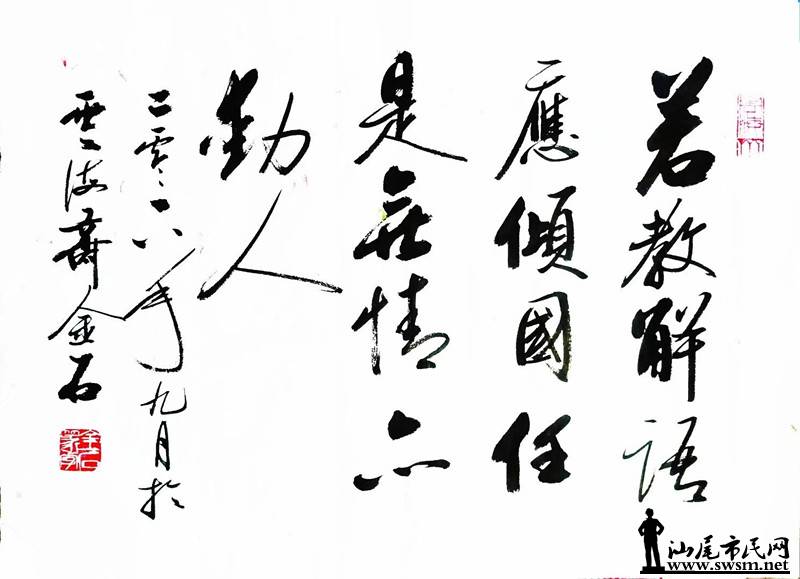 若教解語
應傾國任
是無情亦
動人
二零一六年九月於
雲海齋金石
汕尾市民网
www.swsm.net